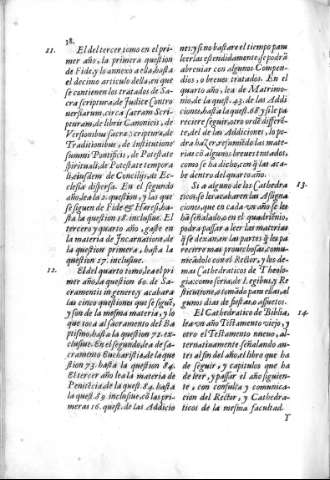 38.
11. El del tercer tomo en el pri-
mer año, la primera question
de Fide, y lo annexo a ella, hasta
el decimo articulo della, en que
se contienen los tratados de Sa-
cra scriptura, de Iudice Contro
versiarum, circa sacram Scrip-
turam, de libris Canonicis, de
Versionibus sacræ scripturæ, de
Traditionibus, de institutione
summi Pontificis, de Potestate
spirituali, de Potestate tempora
li, eiusdem de Concilijs, de Ec-
clesia dispersa. En el segundo
año, lea la 2. question, y las que
se siguen de Fide, y Hæresi, has-
ta la question 18. inclusiue. El
tercero y quarto año, gaste en
la materia de Incarnatione, de
la question primera, hasta la
question 17. inclusiue.
12. El del quarto tomo, lea el pri
mer año, la question 60. de Sa-
cramentis in genere, y acabara
las cinco questiones que se siguē,
y son de la mesma materia, y lo
que toca al sacramento del Ba
ptismo, hasta la question 72. ex-
clusiue. En el segundo, lea de sa-
cramento Eucharistiæ, de la que
stion 73. hasta la question 84.
El tercer año lea la materia de
Penitēcia, de la quest. 84. hasta
la quest. 89. inclusiue, cō las pri-
meras 16. quest. de las Addicio
nes, y si no bastare el tiempo para
leerlas estendidamente, se podrā
abreuiar con algunos Compen-
dios, o breues tratados. En el
quarto año, lea de Matrimo-
nio, de la quest. 43. de las Addi
ciones, hasta la quest. 68. y si le pa-
reciere seguir, otro ordē differē-
te, del de las Addiciones, lo po-
dra hazer, resumiēdo las mate-
rias cō algunos breues tratados,
como se ha dicho, con q̃ las aca-
be dentro del quarto año.
13. Si a alguno de los Cathedra
ticos, se le acabaren las Asigna
ciones, que en cada vn año se les
hā señalado, en el quadriēnio,
podra passar a leer las materias
q̃ se dexan, en las partes q̃ les pa
reciere mas prouechosas, comu-
nicādolo con el Rector, y los de-
mas Cathedraticos de Theolo-
gia; como seria, de Legibus, y Re
stitutione, tomādo para ellas, al
gunos dias de fiestas, o assuetos.
14. El Cathedratico de Biblia,
lea vn año Testamento viejo, y
otro el Testamento nueuo, al-
ternatiuamente señalando an-
tes al fin del año, el libro que ha
de seguir, y capitulos que ha
de leer, y passar el año siguien-
te, con consulta y comunica-
cion del Rector, y Cathedra-
ticos de la mesma facultad.
Y